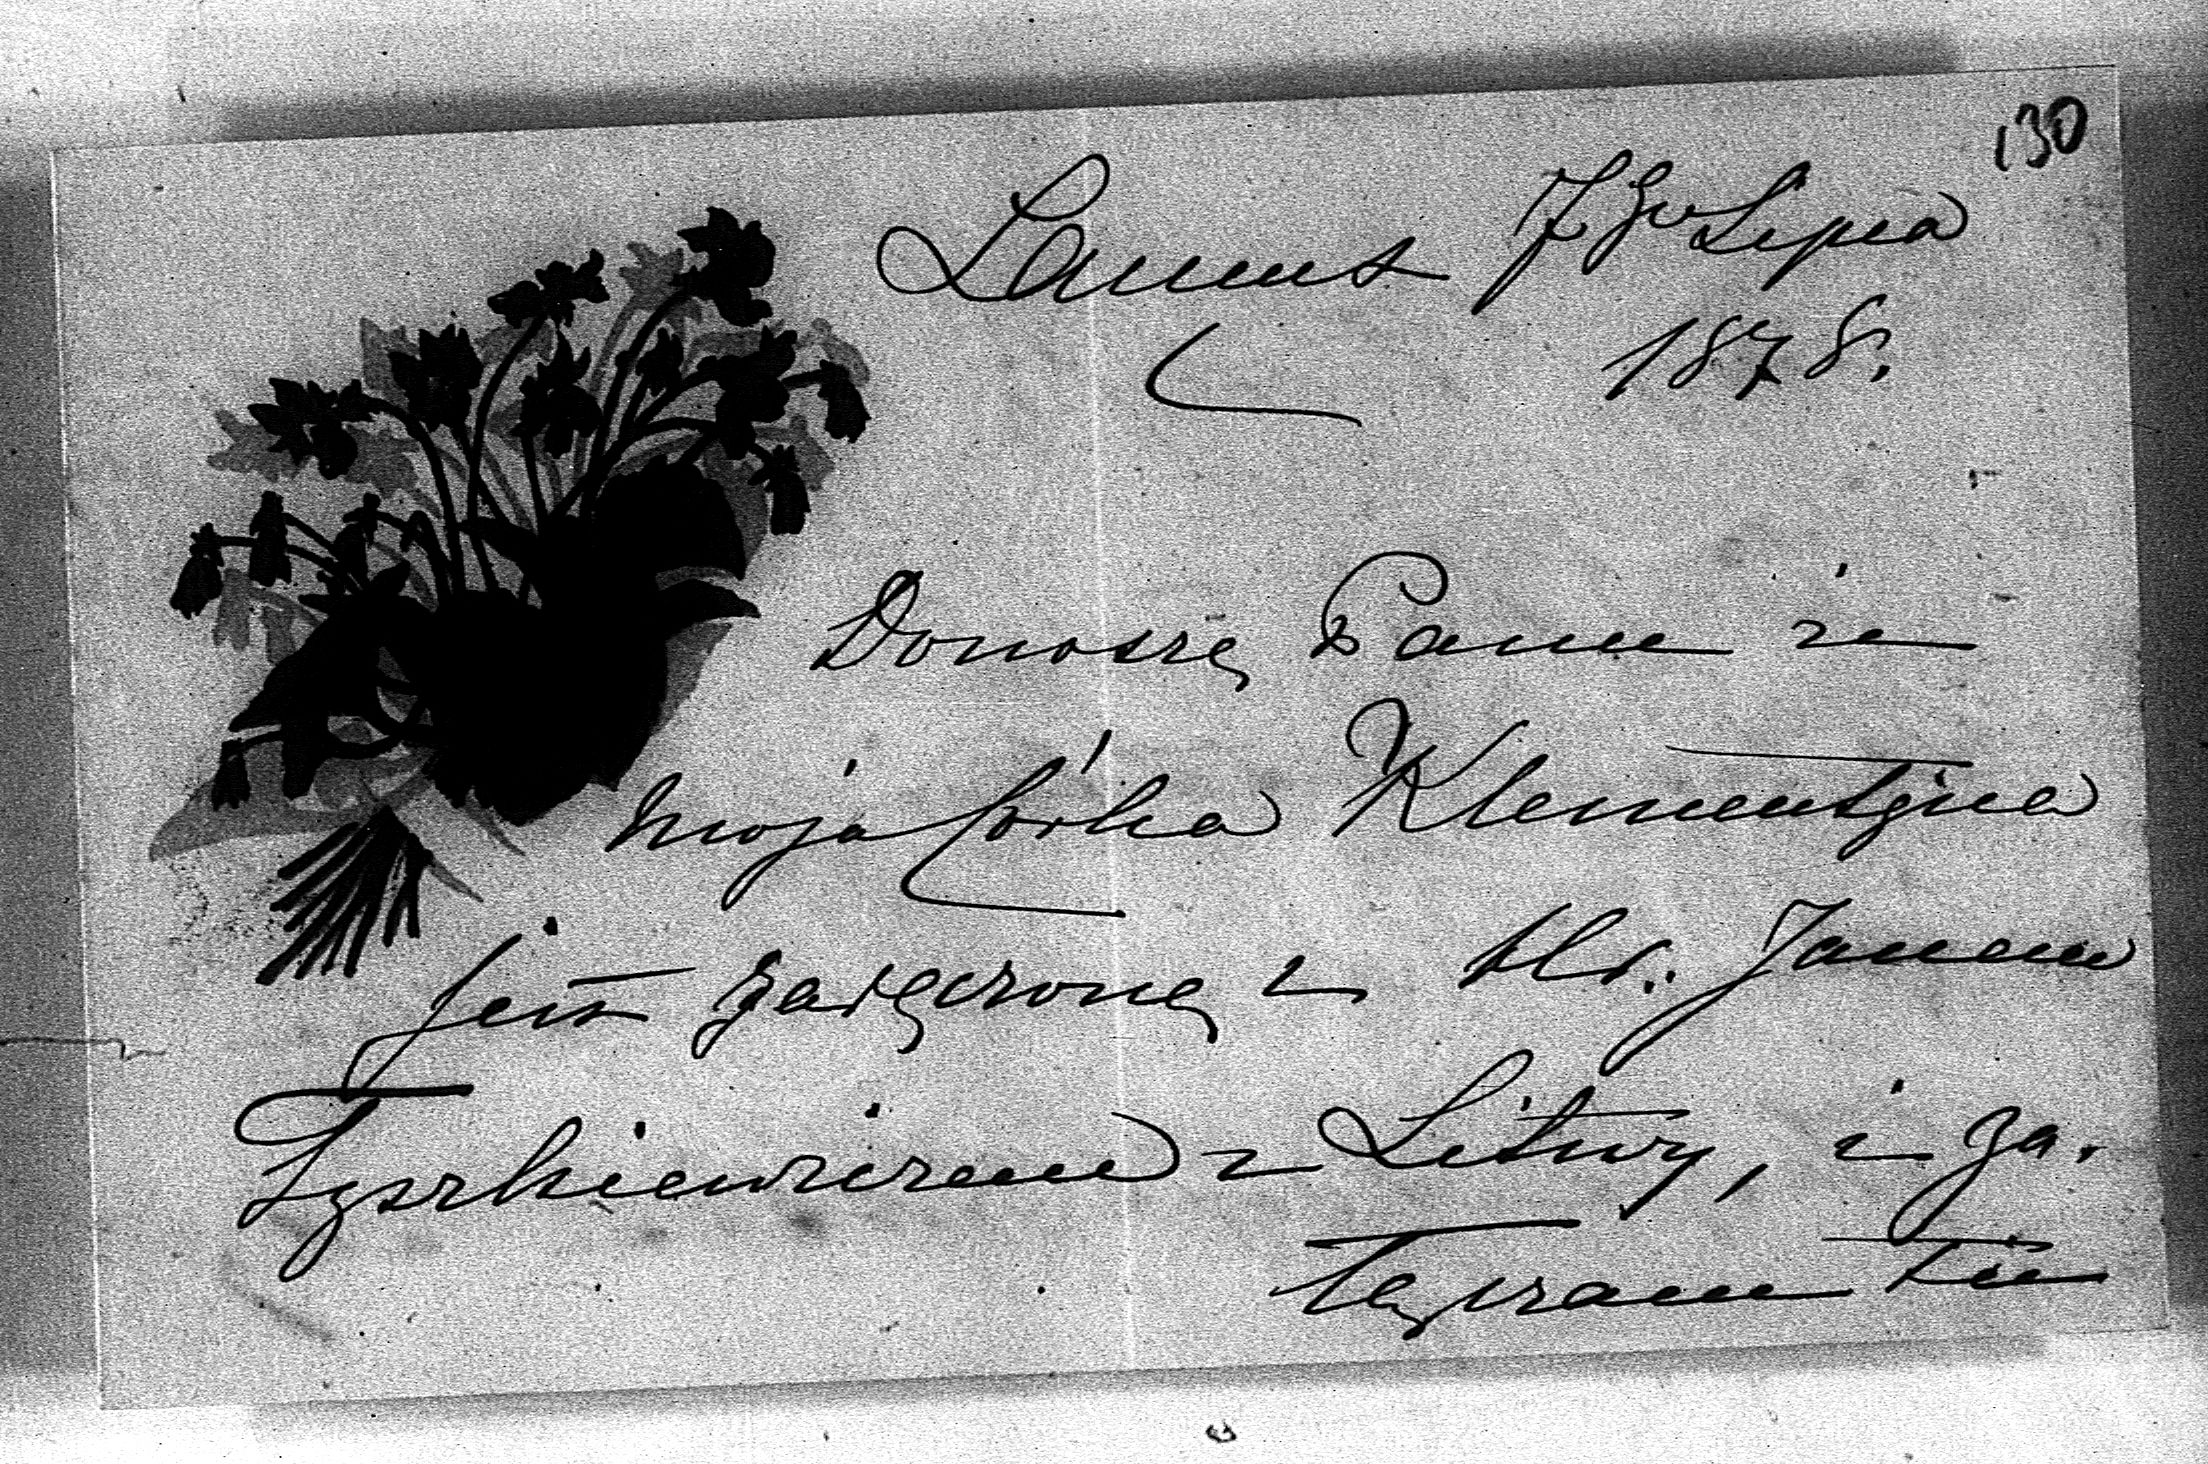 130
Łańcut 7go Lipca
1878.
Donoszę Panu że
moja córka Klementyna
jest zaręczoną z Hr. Janem
Tyszkiewiczem z Litwy, i za-
łączam tu